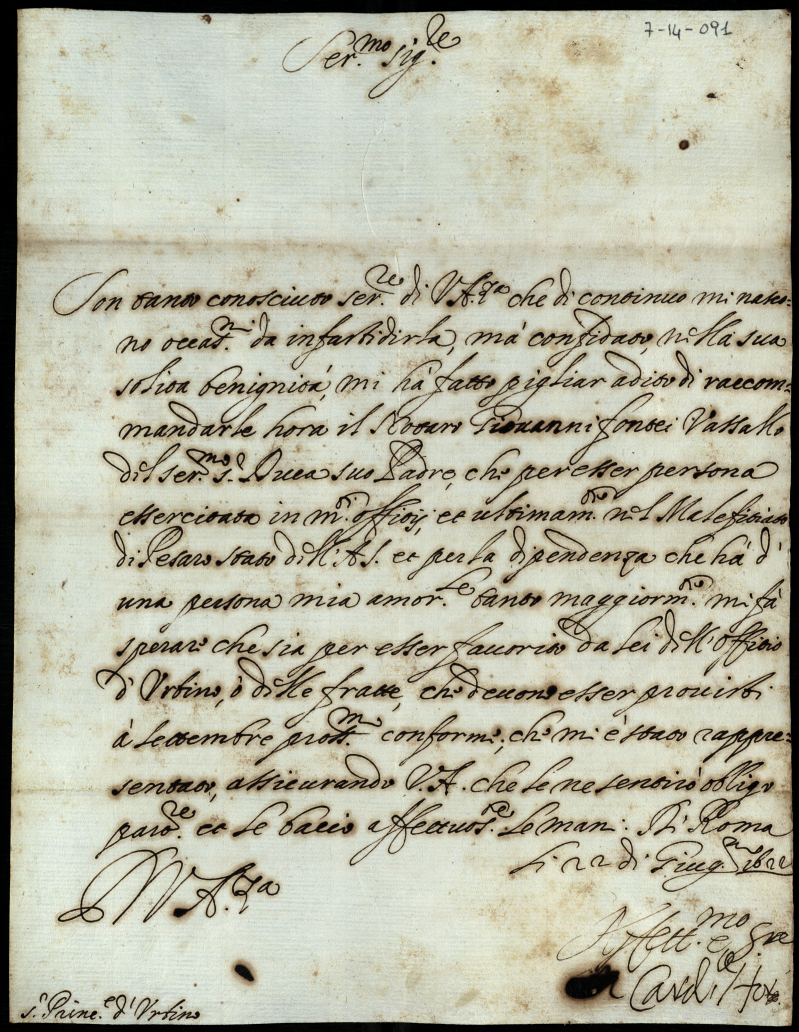 7-14-091
Ser.mo Sig.re
Son tanto conosciuto ser.re di V.A.za che di continuo mi nasco=
no occas.ni da infastidirla, mà confidato, nella sua
solita benignità, mi hà fatto pigliar adito di raccom=
mandarle hora il Giovanni fontei Vassallo
del ser.mo s.r Duca suo Padre, che per esser persona
essercitata in m.ti offitij, et ultimam.te nel Malefitiato
di Pesaro stato dell'A.S. et per la dipendenza che hà d'
una persona mia amor.le tanto maggiorm.te mi fà
sperare che sia per esser favorito da lei dell'offitio
d'Urbino, ò delle fratte, che devono esser provisti
à settembre pross.mo conforme, che mi è stato rappre=
sentato, assicurando V.A. che le ne sentirò obligo
par.re et le bacio affettuos.te le mani. Di Roma
li 22 di Giug.no 1622
D V.A.za
Affett.mo e Ser.re
Card.
s.r Princ.e d'Urbino